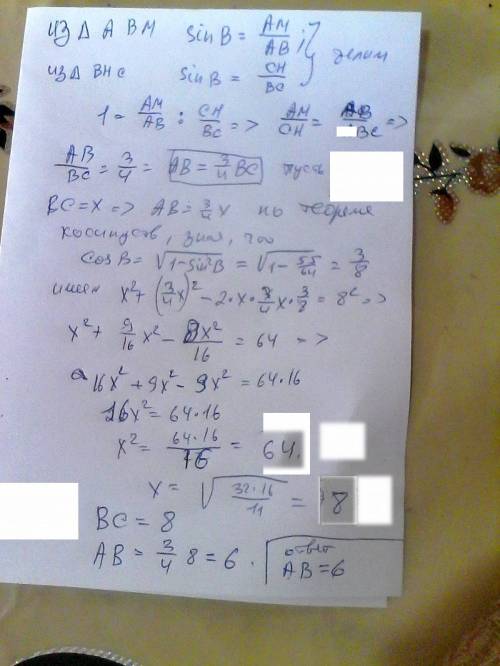 из Δ ABM sin B = AM/AB ;
из Δ BHC sin B = CH/BC } делим
1 = AM/AB : CH/BC => AM/CH = AB/BC =>
AB/BC = 3/4 = AB = 3/4 BC пусть
BC = x => AB = 3/4 x по теореме
косинусов, зная, что
cos B = √(1-sin²B) = √(1 - 55/64) = 3/8
имеем x² + (3/4 x)² - 2·x·3/4 x·3/8 = 8² =>
x² + 9/16 x² - 9x²/16 = 64 =>
16x² + 9x² - 9x² = 64·16
16x² = 64·16
x² = 64·16/16 = 64.
x = √(32·16/11) = 8
BC = 8
AB = 3/4 8 = 6 .
ответ
AB = 6